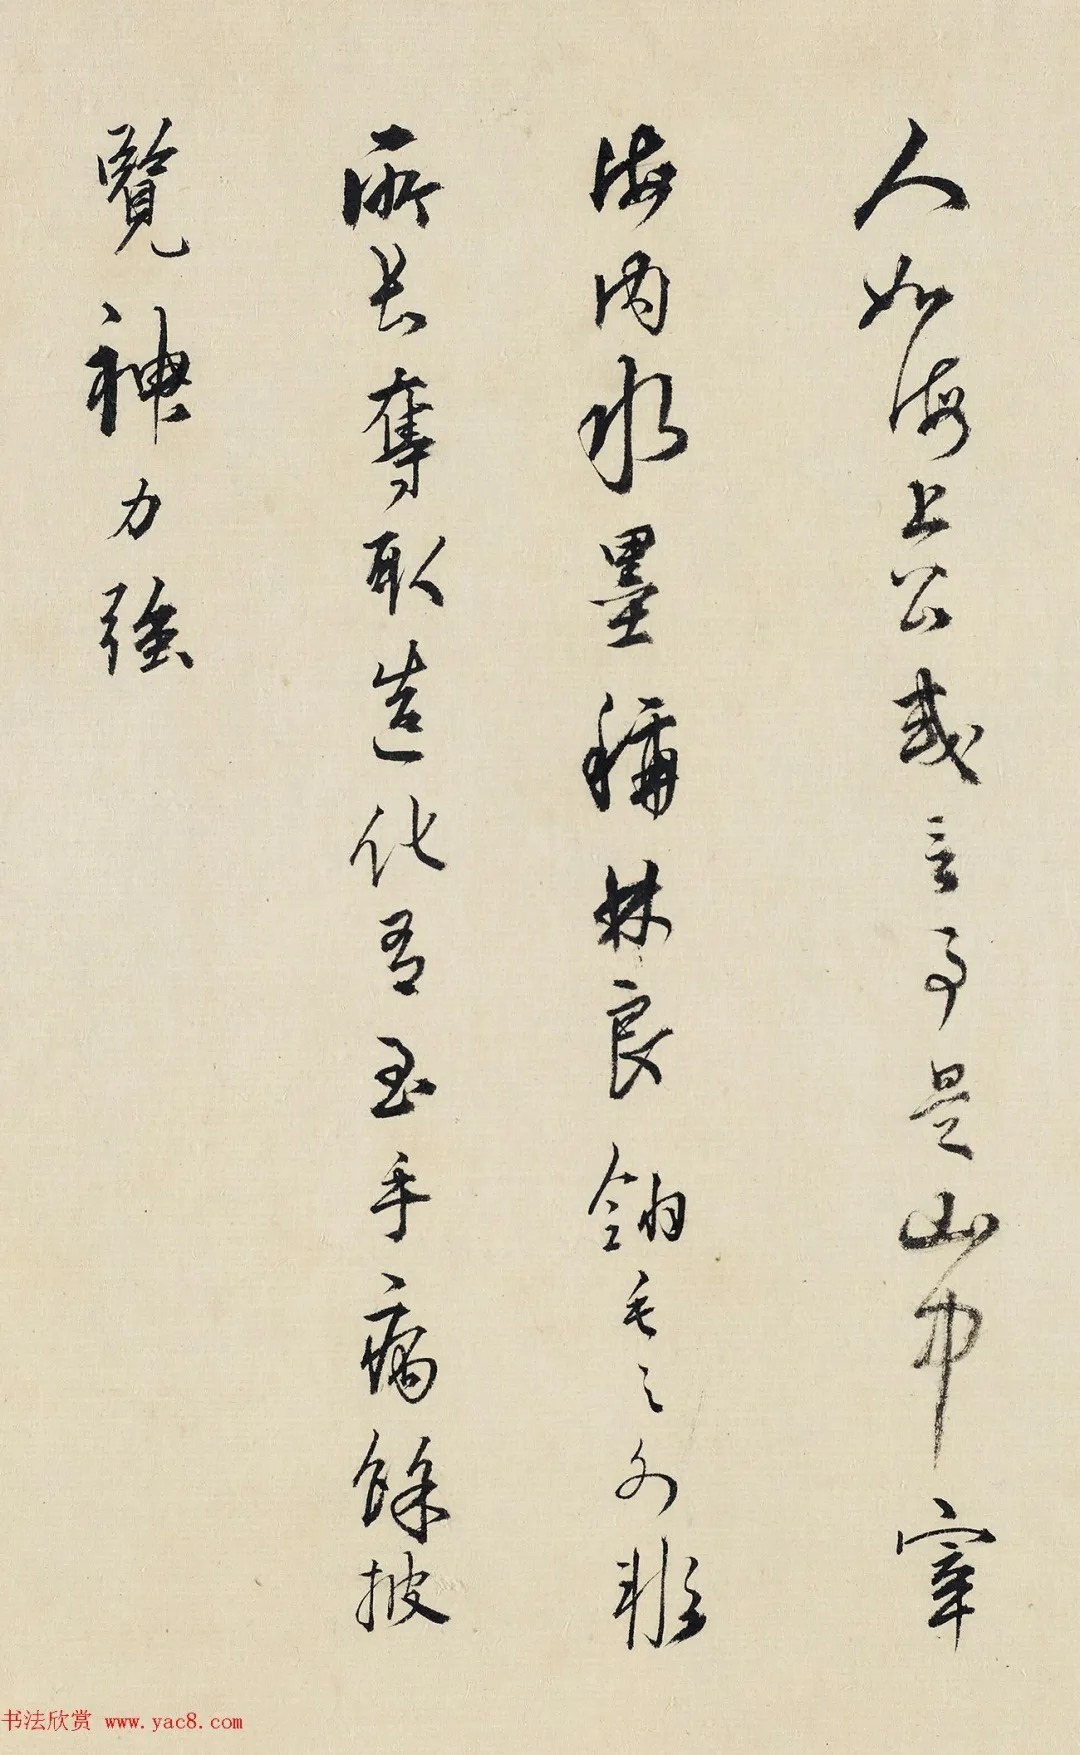 人如海上公或言予是山中宰
海内水墨稱林良翎毛之外非
所長奪取造化有至手病餘披
覽神力强
书法欣赏 www.yac8.com